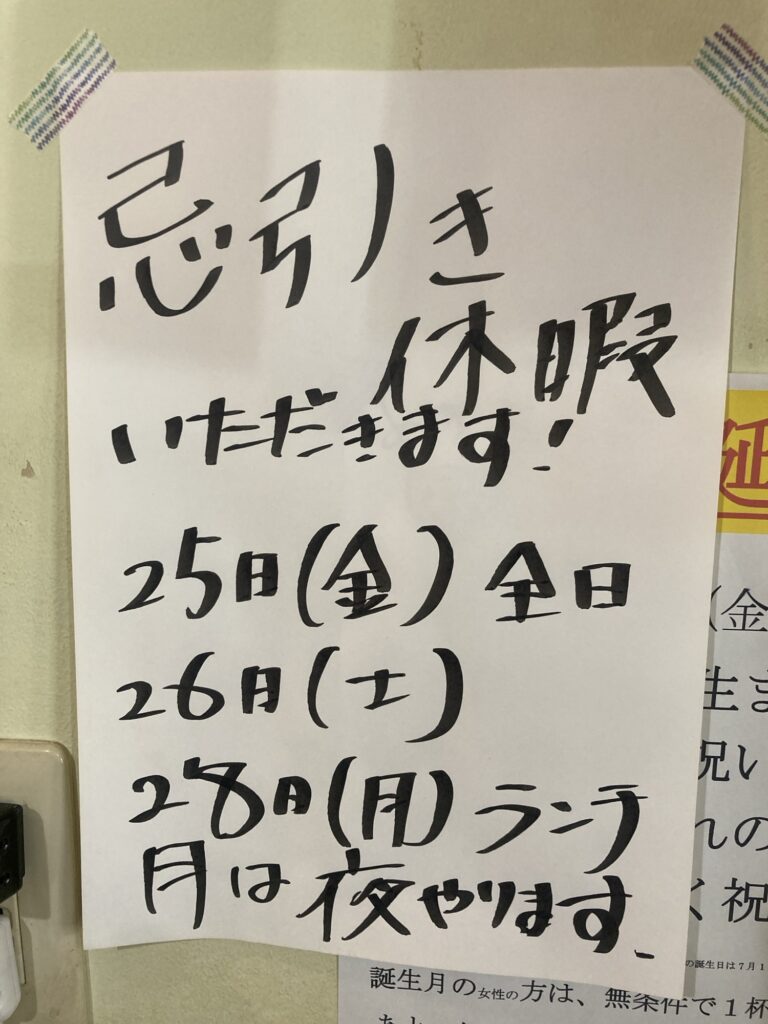 忌引き
休暇
いただきます!
25日(金) 全日
26日(土)
28日(月) ランチ
月は夜やります
延
(金
生ま
祝い
れの
く祝
の誕生日は7月1
誕生月の女性の方は、無条件で1杯